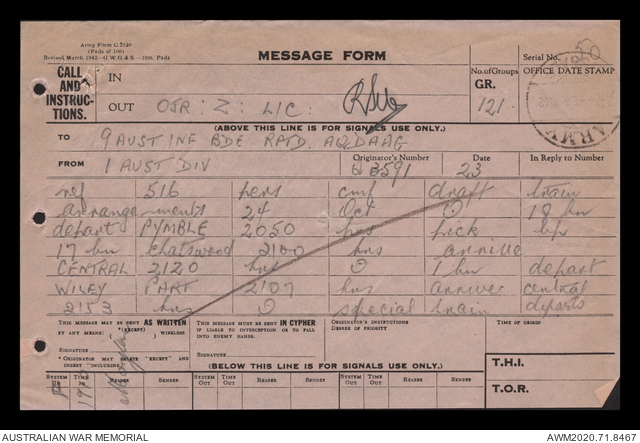 Army Form C 2120
(Pads of 100)
Revised, March 1942—G.W.G.&S.—150m. Pads
MESSAGE FORM
Serial No. 50
CALL AND INSTRUC-TIONS.
IN
OUT OJR : Z : L/C :
No. of Groups
GR.
121.
OFFICE DATE STAMP
ARMY
(ABOVE THIS LINE IS FOR SIGNALS USE ONLY.)
TO 9 AUST INF BDE RPTD. AQDAAG
FROM 1 AUST DIV
Originator's Number
Q 3591
Date
23
In Reply to Number
ref 516 pers cmf draft train
arrange ments 24 Oct ⊙ 18 hn
depart PYMBLE 2050 hrs pick up
17 hn Chatswood 2100 hrs arrive
CENTRAL 2120 hrs ⊙ 1 hn depart
WILEY PART 2107 hrs arrives central
2153 hrs ⊙ special train departs
THIS MESSAGE MAY BE SENT AS WRITTEN
BY ANY MEANS. *(EXCEPT) WIRELESS
SIGNATURE
* ORIGINATOR MAY DELETE "EXCEPT" AND
INSERT "INCLUDING"
THIS MESSAGE MUST BE SENT IN CYPHER
IF LIABLE TO INTERCEPTION OR TO FALL
INTO ENEMY HANDS.
SIGNATURE
ORIGINATOR'S INSTRUCTIONS
DEGREE OF PRIORITY
TIME OF ORIGIN
(BELOW THIS LINE IS FOR SIGNALS USE ONLY.)
SYSTEM IN TIME IN READER SENDER SYSTEM OUT TIME OUT READER SENDER SYSTEM OUT TIME OUT READER SENDER
T.H.I.
T.O.R.
AUSTRALIAN WAR MEMORIAL
AWM2020.71.8467